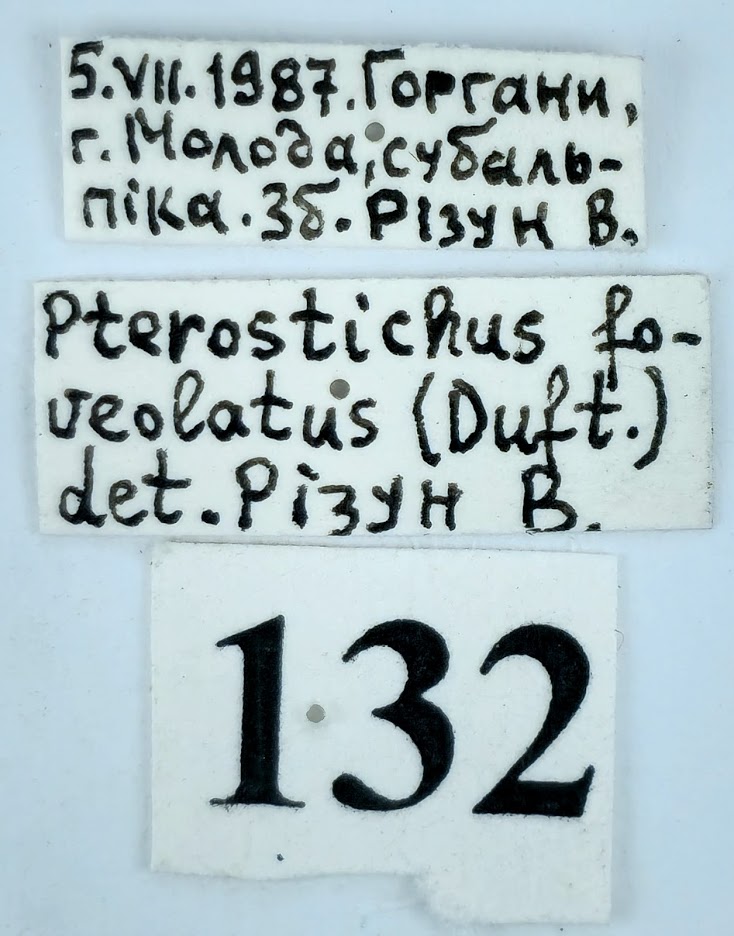 5.VII.1987. Горгани,
г. Молода, субаль-
піка. Зб. Різун В.
Pterostichus fo-
veolatus (Duft.)
det. Різун В.
132